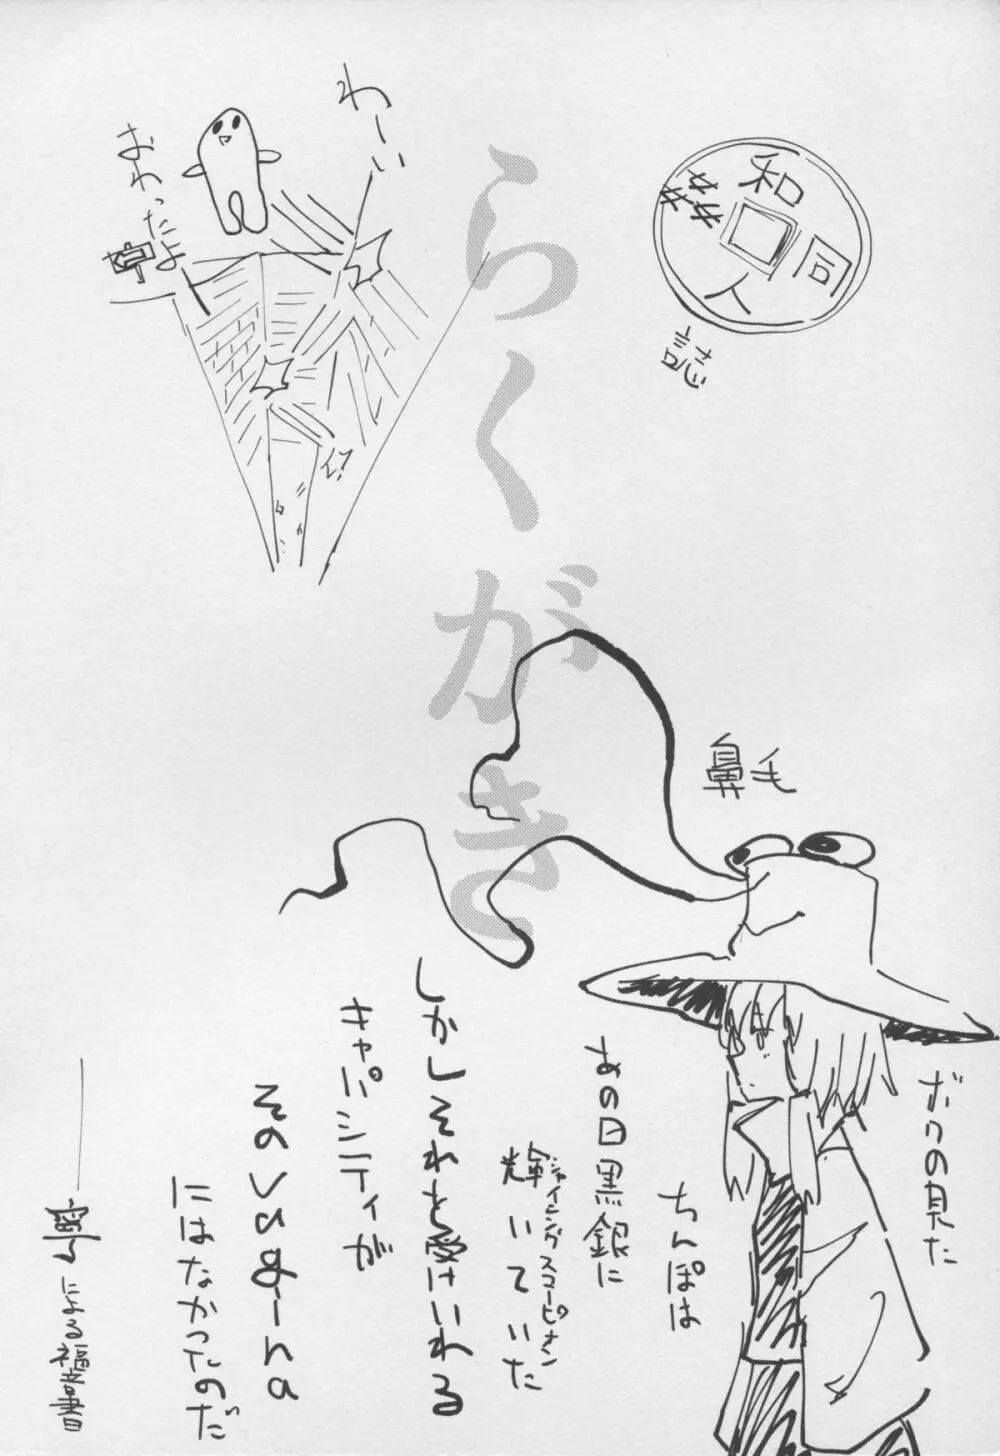 わーい
おわったよ
らくがき
和
同
人
誌
鼻毛
ボクの見た
ちんぽは
あの日黒銀に
輝いていた
シャイニングスコーピオン
しかしそれを受けいれる
キャパシティが
その
にはなかったのだ
による福音書